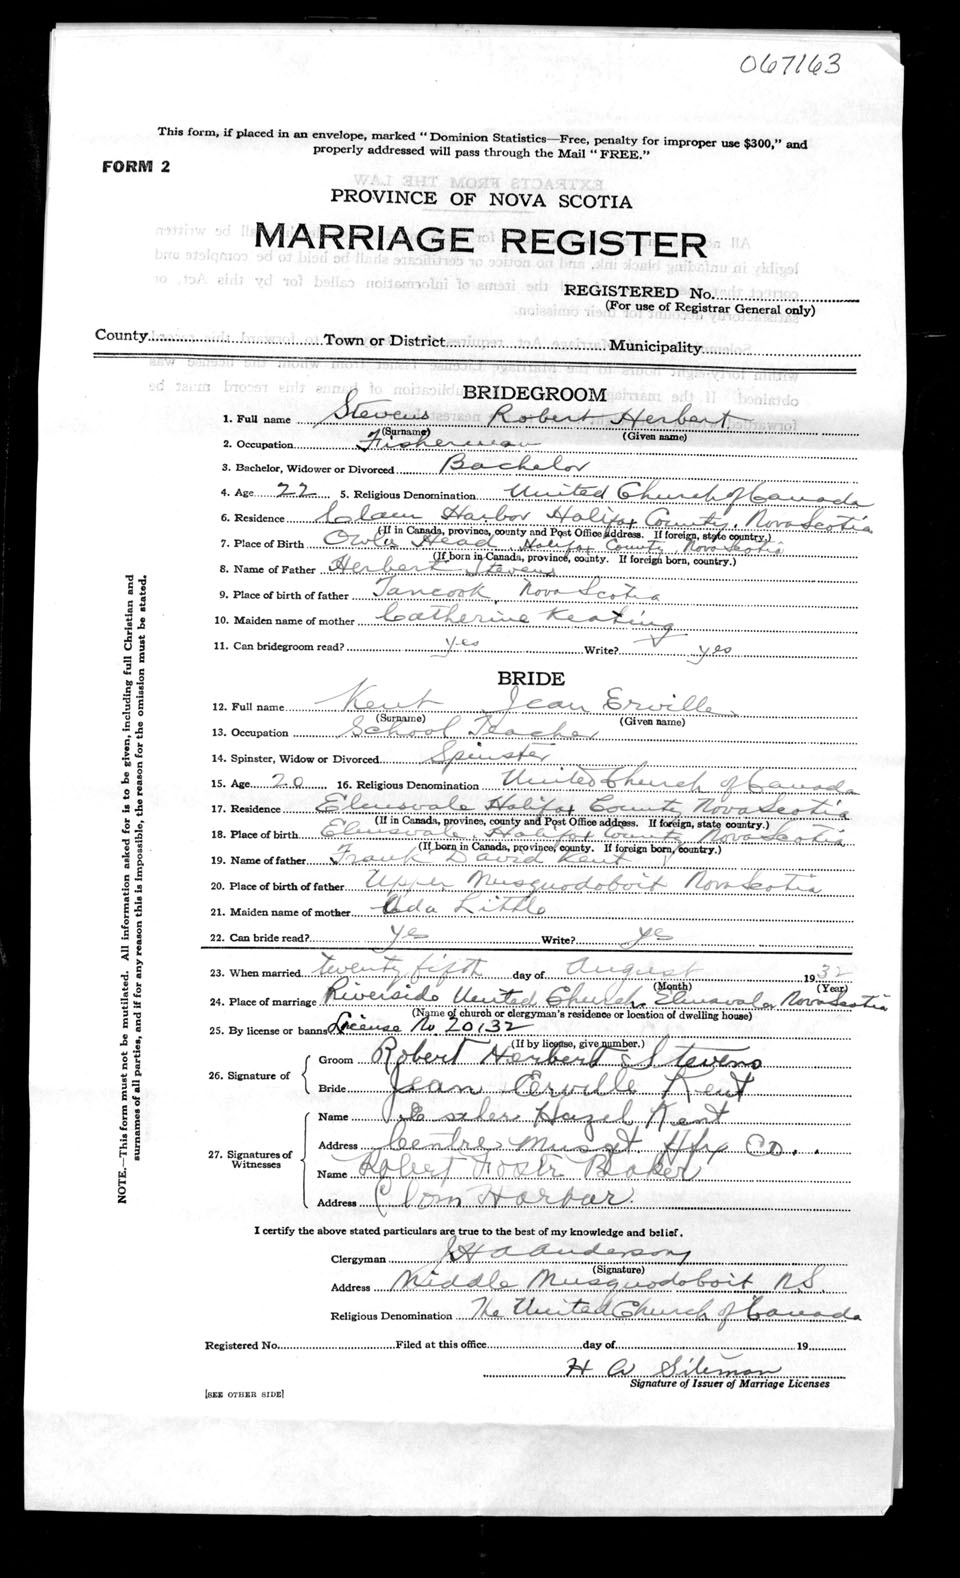 067163
This form, if placed in an envelope, marked "Dominion Statistics—Free, penalty for improper use $300," and
properly addressed will pass through the Mail "FREE."
FORM 2
PROVINCE OF NOVA SCOTIA
MARRIAGE REGISTER
REGISTERED No.
(For use of Registrar General only)
County Town or District Municipality
BRIDEGROOM
1. Full name Stevens Robert Herbert
(Surname) (Given name)
2. Occupation Fisherman
3. Bachelor, Widower or Divorced Bachelor
4. Age 22 5. Religious Denomination United Church of Canada
6. Residence Clam Harbor Halifax County, Nova Scotia
(If in Canada, province, county and Post Office address. If foreign, state country.)
7. Place of Birth Owls Head, Halifax County Nova Scotia
(If born in Canada, province, county. If foreign born, country.)
8. Name of Father Herbert Stevens
9. Place of birth of father Tancook, Nova Scotia
10. Maiden name of mother Catherine Keating
11. Can bridegroom read? yes Write? yes
BRIDE
12. Full name Kent Jean Erville
(Surname) (Given name)
13. Occupation School Teacher
14. Spinster, Widow or Divorced Spinster
15. Age 20 16. Religious Denomination United Church of Canada
17. Residence Elmsvale Halifax County Nova Scotia
(If in Canada, province, county and Post Office address. If foreign, state country.)
18. Place of birth Elmsvale, Halifax County Nova Scotia
(If born in Canada, province, county. If foreign born, country.)
19. Name of father Frank David Kent
20. Place of birth of father Upper Musquodoboit Nova Scotia
21. Maiden name of mother Ada Little
22. Can bride read? yes Write? yes
23. When married twenty fifth day of August 1932
(Month) (Year)
24. Place of marriage Riverside United Church, Elmsvale, Nova Scotia
(Name of church or clergyman's residence or location of dwelling house)
25. By license or banns License No. 20132
(If by license, give number.)
26. Signature of Groom Robert Herbert Stevens
Bride Jean Erville Kent
27. Signatures of Witnesses Name Esther Hazel Kent
Address Centre Musqt. Hfx Co.
Name Robert Foster Baker
Address Clam Harbor
I certify the above stated particulars are true to the best of my knowledge and belief.
Clergyman J H A Anderson
(Signature)
Address Middle Musquodoboit N.S.
Religious Denomination The United Church of Canada
Registered No. Filed at this office day of 19
H W
Signature of Issuer of Marriage Licenses
[SEE OTHER SIDE]
NOTE.—This form must not be mutilated. All information asked for is to be given, including full Christian and
surnames of all parties, and if for any reason this is impossible, the reason for the omission must be stated.